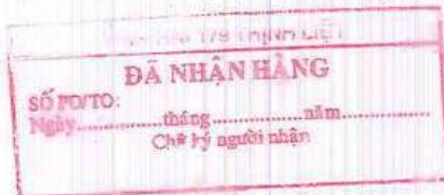 179 THỊNH LIỆT
ĐÃ NHẬN HÀNG
SỐ PO/TO:
Ngày..............tháng................năm................
Chữ ký người nhận